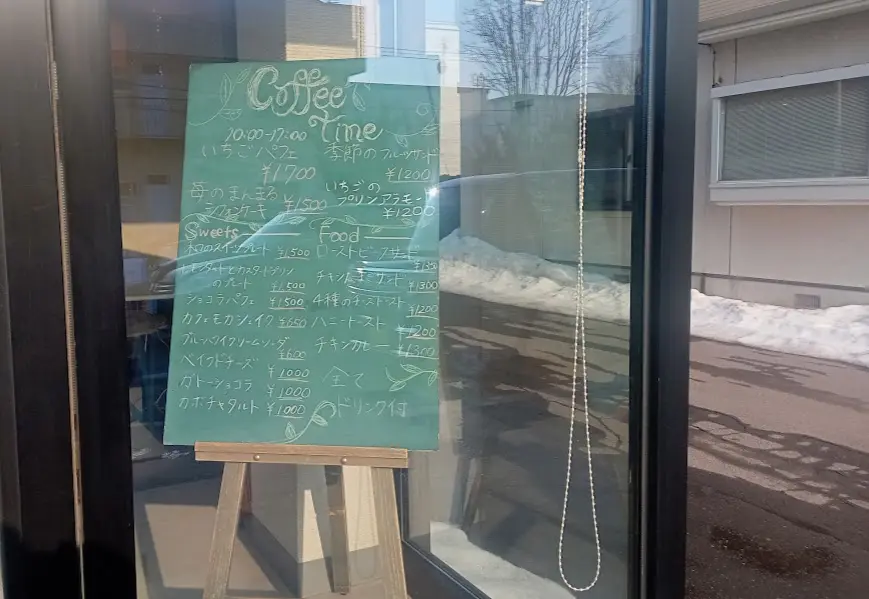 Coffee
Time
10:00-17:00
いちごパフェ
¥1700
苺のまんまる
シフォンケーキ ¥1500
季節のフルーツサンド
¥1200
いちごの
プリンアラモード
¥1200
Sweets
スイーツプレート ¥1,500
のプレート ¥1500
ショコラパフェ ¥1500
カフェモカシェイク ¥650
ブルーハワイクリームソーダ
¥600
ベイクドチーズ
¥1000
ガトーショコラ
¥1000
カボチャタルト ¥1000
Food
ローストビーフサンド
チキン サンド
¥1300
4種のチーズトースト
¥1200
ハニートースト
¥1200
チキンカレー ¥1300
全て
ドリンク付